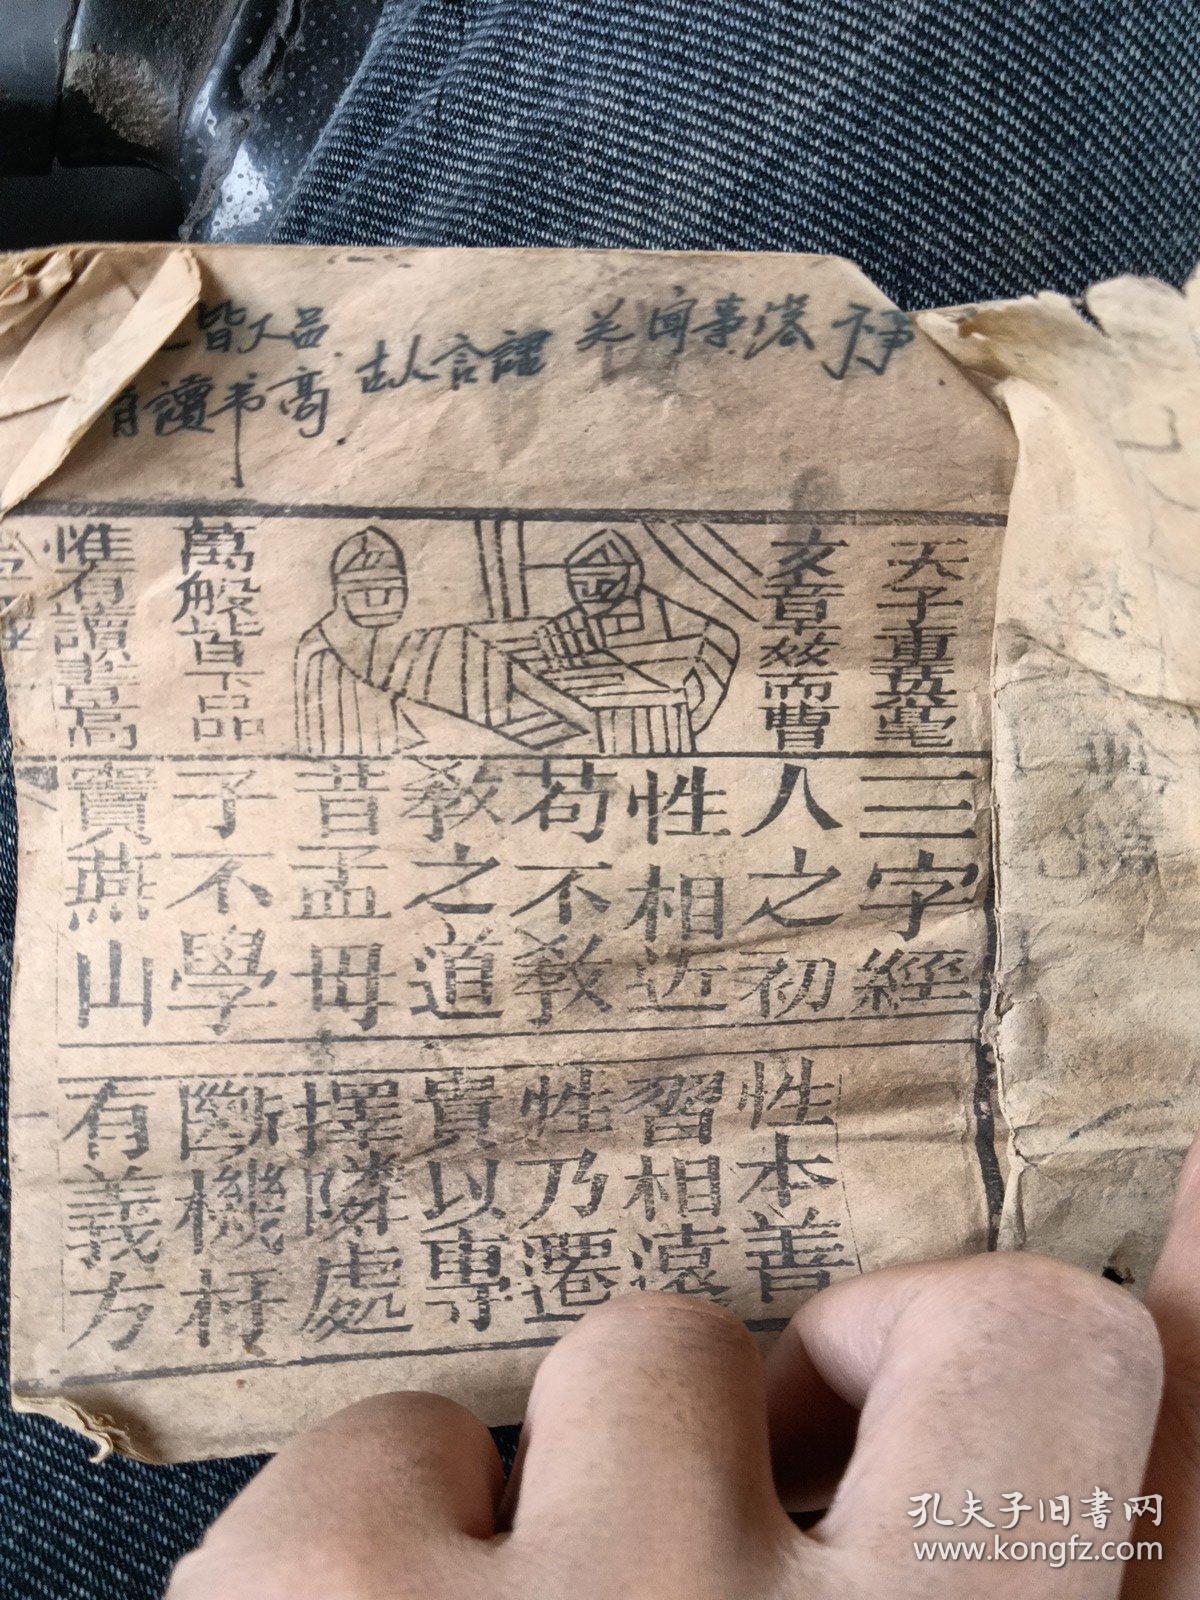 古人言
讀书高
天子重英毫
文章教而曹
萬般皆下品
惟有讀書高
三字經
人之初
性本善
性相近
習相遠
苟不教
性乃遷
教之道
貴以專
昔孟母
擇隣處
子不學
斷機杼
竇燕山
有義方
孔夫子旧书网
www.kongfz.com